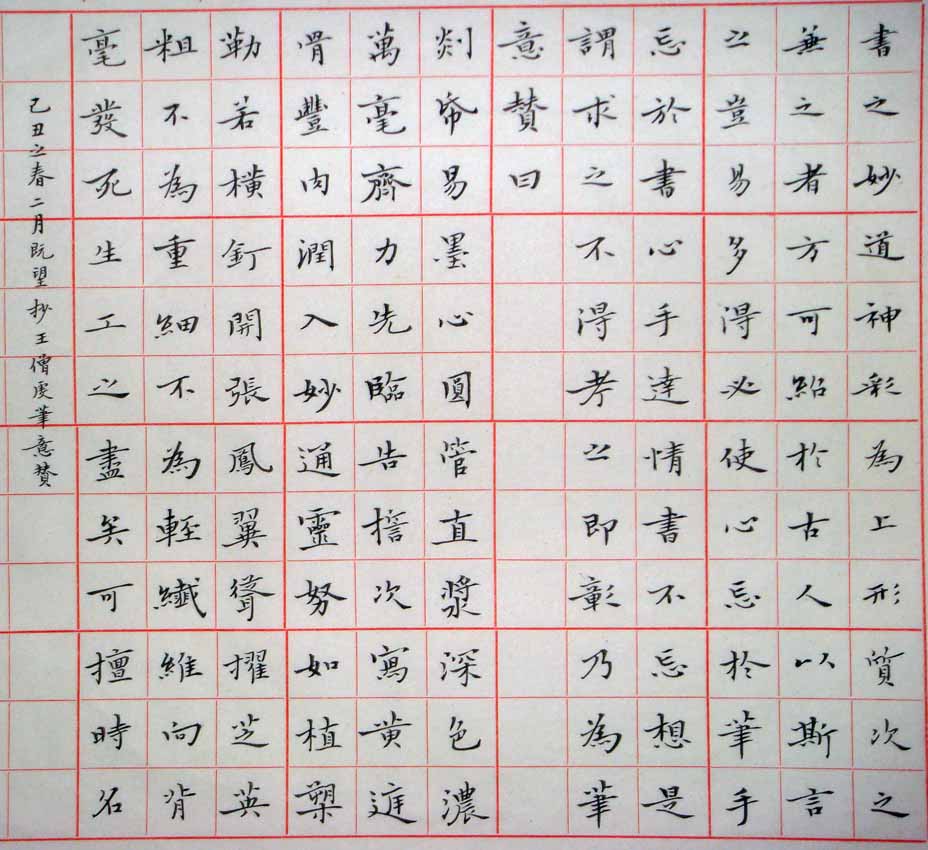 書之妙道神彩為上形質次之
兼之者方可紹於古人以斯言
之豈易多得必使心忘於筆手
忘於書心手達情書不忘想是
謂求之不得考之即彰乃為筆
意贊曰
剡帋易墨心圓管直漿深色濃
萬毫齊力先臨告誓次寫黃庭
骨豐肉潤入妙通靈努如植槊
勒若橫釘開張鳳翼聳擢芝英
粗不為重細不為輕纖維向背
毫發死生工之盡矣可擅時名
己丑之春二月既望抄王僧虔筆意贊